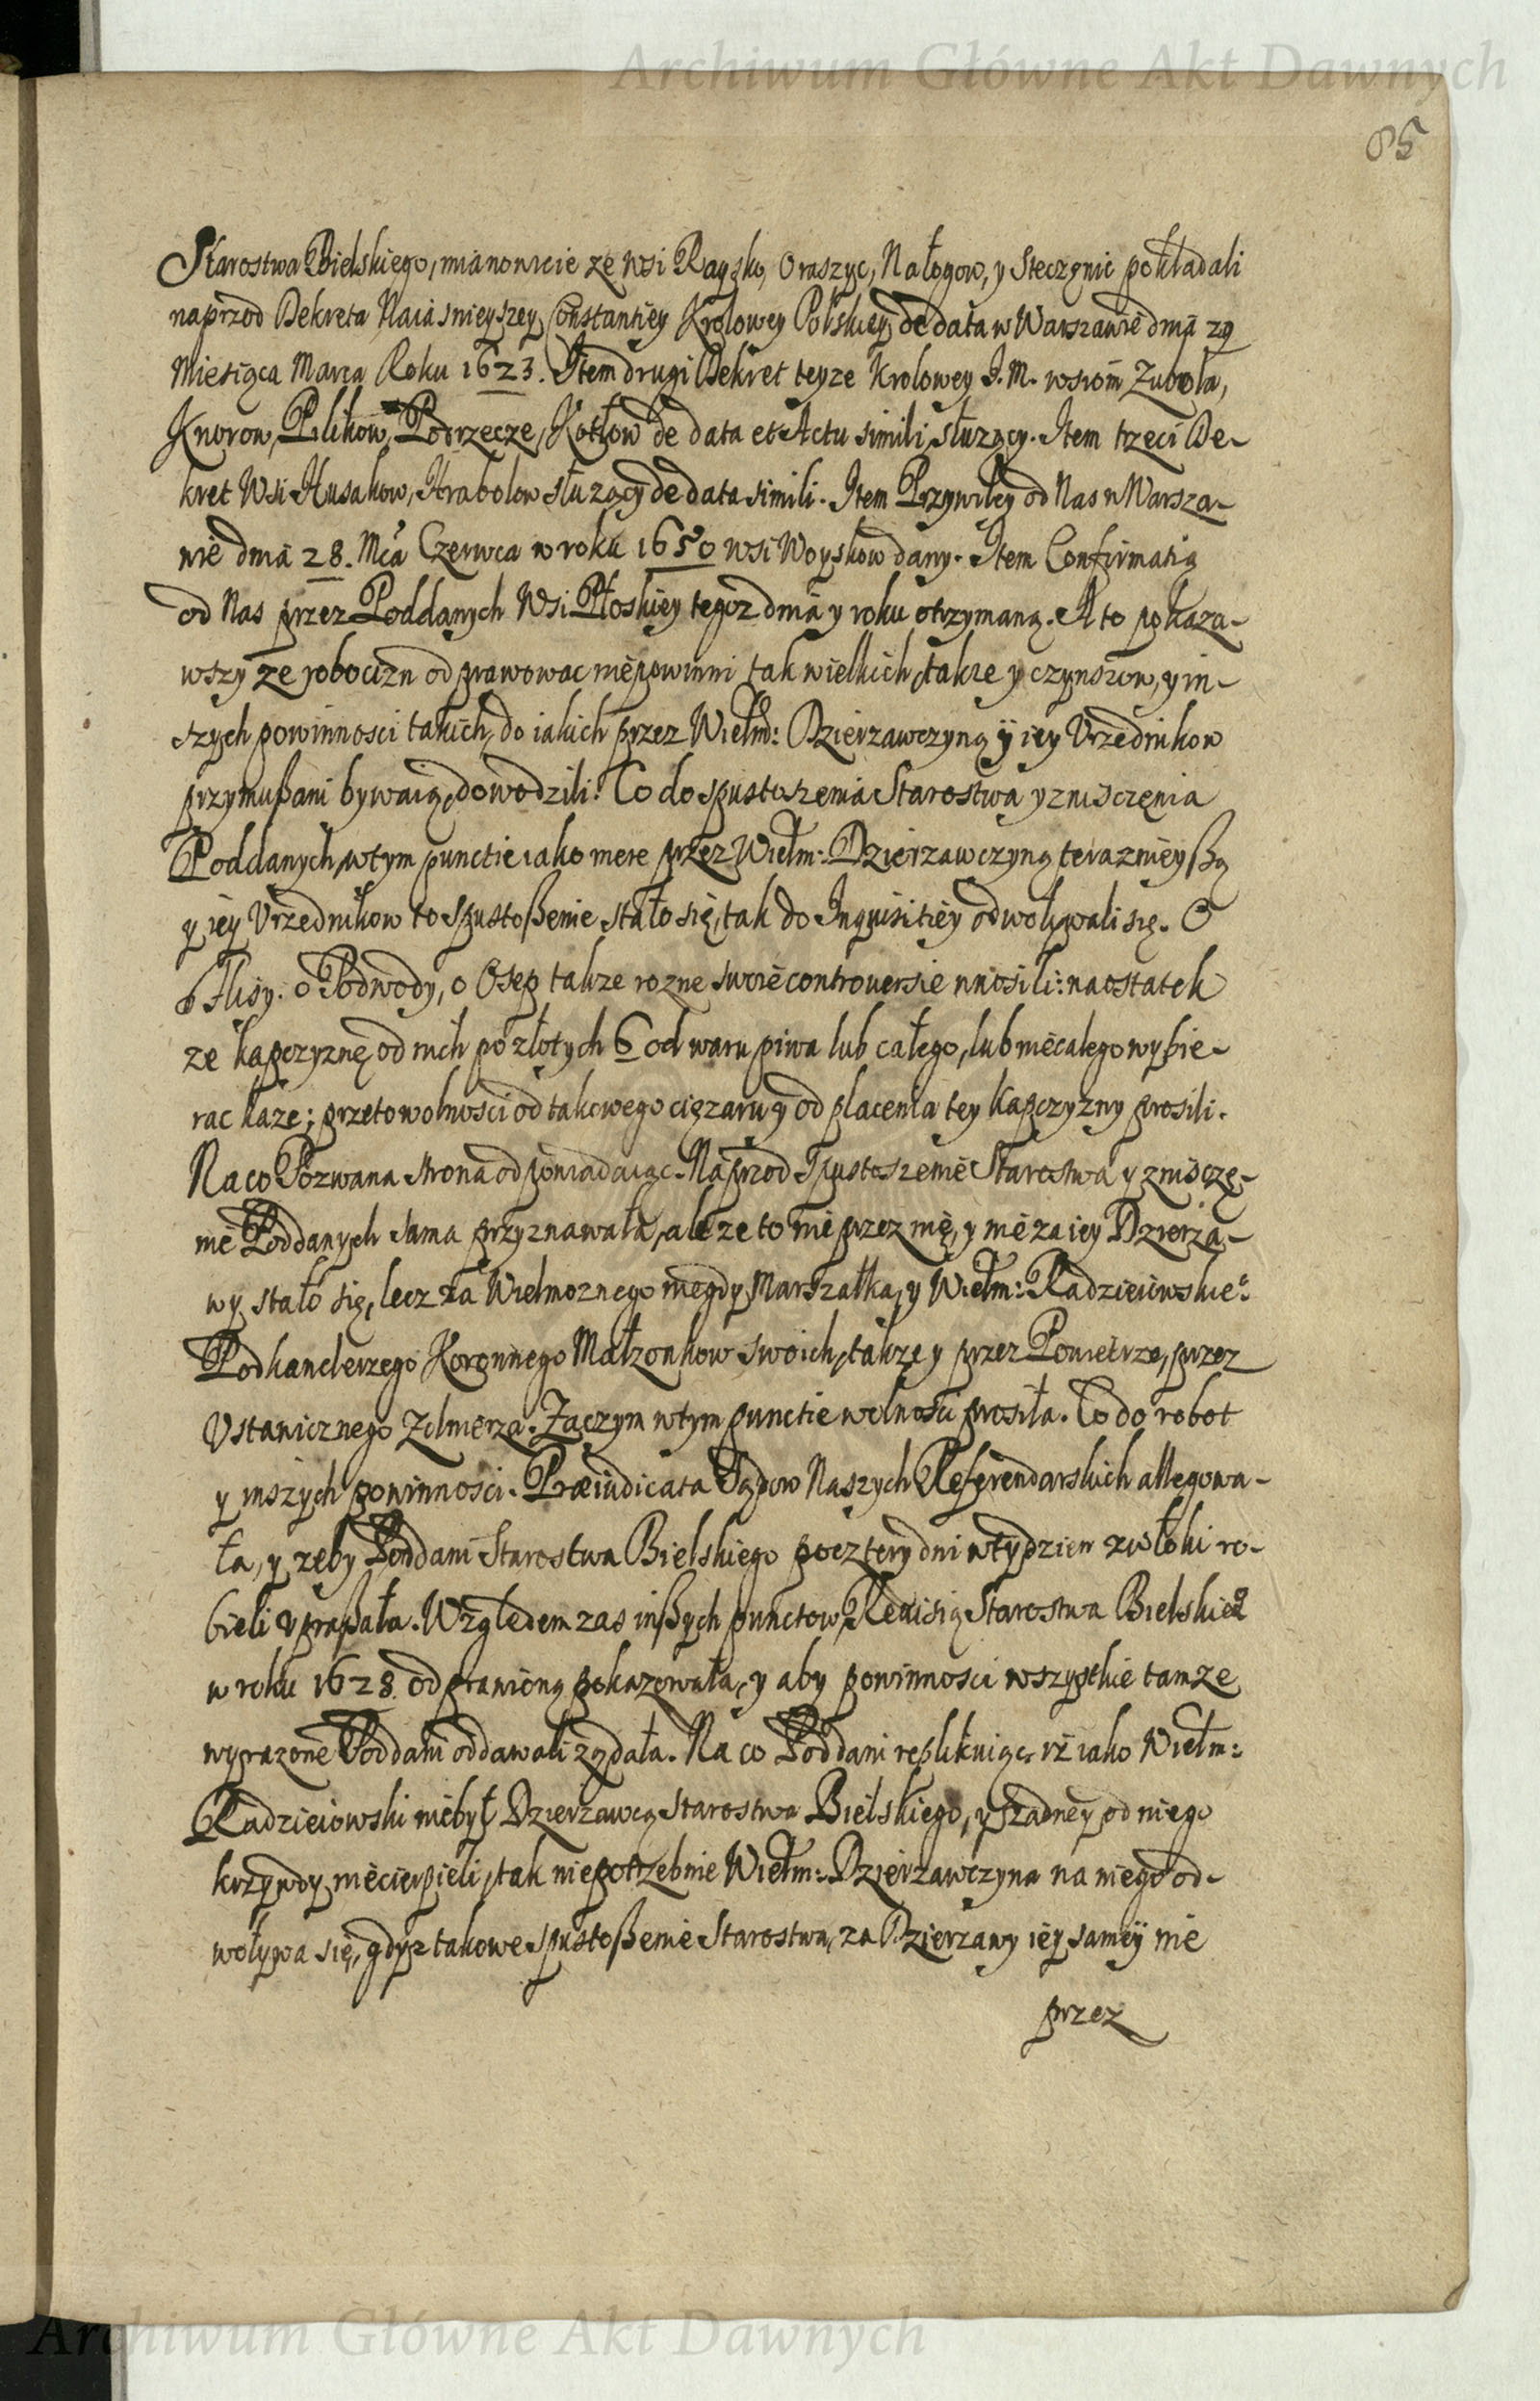 Archiwum Główne Akt Dawnych
85
Starostwa Bielskiego, mianowicie ze wsi Raysko, Oraszyc, Nałogow, y Steczynic pokładali
naprzod Dekreta Naiasnieyszey Constantiey Krolowey Polskiey de data w Warszawie dnia 29
Miesiąca Marca Roku 1623. Item drugi Dekret teyze Krolowey J. M. wsiom Zubola,
Knorow, Pilikow, Podrzecze, Kotłow de data et Actu simili słuzący. Item trzeci De-
kret Wsi Husakow, Hrabolow słuzący de data simili. Item Przywiley od Nas w Warsza-
wie dnia 28. Mca Czerwca w roku 1650 wsi Woyskow dany. Item Confirmatią
od Nas przez Poddanych Wsi Płoskiey tegoz dnia y roku otrzymaną. A to pokaza-
wszy ze robocizn odprawowac niepowinni tak wielkich, takze y czynszow, y in-
szych powinnosci takich, do iakich przez Wielm: Dzierzawczyną y iey Vrzednikow
przymußani bywaią, dowodzili. Co do spustoszenia Starostwa y zniszczęnia
Poddanych, w tym punctie iako mere przez Wielm: Dzierzawczyną teraznieyßą
y iey Vrzednikow to spustoßenie stało się, tak do Inquisitiey odwoływali się. O
o Flisy. o Podwody, o Osep takze rozne swoie controuersie wnosili: naostatek
ze kapczyznę od nich po złotych 6 od waru piwa lub całego, lub niecałego wybie-
rac kaze; przeto wolnosci od takowego cięzaru y od placenia tey kapczyzny prosili.
Na co Pozwana strona odpowiadaiąc. Naprzod Spustoszenie Starostwa y zniszczę-
nie Poddanych sama przyznawała, ale ze to nie przez nię, y nie za iey Dzierza-
wy stało się, lecz za Wielmoznego niegdy Marszałka, y Wielm: Radzieiowskie°
Podkanclerzego Koronnego Małzonkow swoich, takze y przez Powietrze, przez
Vstawicznego Zolnierza. Zaczym w tym punctie wolnosci prosiła. Co do robot
y inszych powinnosci. Præiudicata Sądow Naszych Referendarskich allegowa-
ła, y zeby Poddani Starostwa Bielskiego po cztery dni w tydzien z włoki ro-
bieli vpraßała. Względem zas inßych punctow, Rewisią Starostwa Bielskie°
w roku 1628. odprawioną pokazowała, y aby powinnosci wszystkie tamze
wyrazone Poddani oddawali ządała. Na co Poddani replikuiąc, iz iako Wielm:
Radzieiowski niebył Dzierzawcą Starostwa Bielskiego, y zadney od niego
krzywdy niecierpieli, tak niepotrzebnie Wielm: Dzierzawczyna na niego od-
woływa się, gdyz takowe spustoßenie Starostwa, za Dzierzawy iey samey nie
przez
Archiwum Główne Akt Dawnych